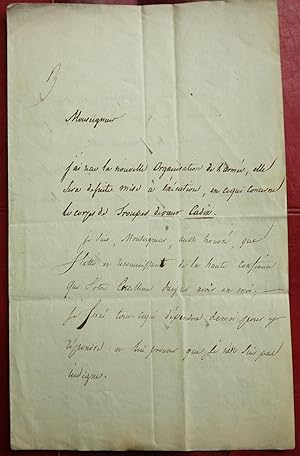 Monseigneur
j'ai reçu la nouvelle Organisation de l'armée, elle
sera de suite mise à exécution, en ce qui concerne
le corps de Troupes devant Cadix.
je suis, Monseigneur, aussi honoré, que
flatté et reconnaissant de la haute confiance
que Votre Excellence daigne avoir en moi,
je ferai tout ce qui dependra de moi pour y
repondre et lui prouver que je n'en suis pas
indigne.